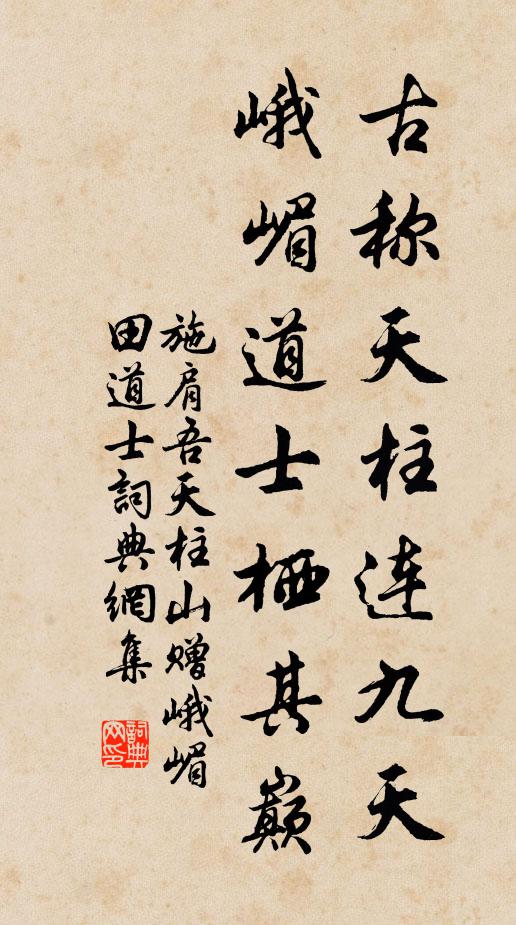 古称天柱連九天
峨嵋道士栖其巅
施肩吾天柱山赠峨嵋
田道士詞典網集
詞典网印